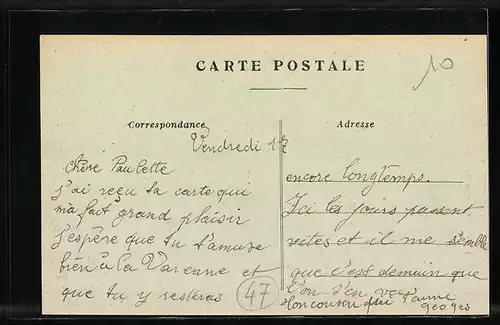 CARTE POSTALE
10
Correspondance
Adresse
Vendredi 17
Chère Paulette
j'ai reçu ta carte qui
m'a fait grand plaisir
j'espère que tu t'amuse
bien à La Varenne et
que tu y resteras
47
encore longtemps.
Ici les jours passent
vites et il me semble
que c'est demain que
l'on s'en va
ton cousin qui t'aime
Georges